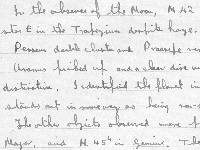 In the absence of the Moon, M 42
star E in the Trapezium despite haze.
Perseus double cluster and Praesepe
Uranus picked up and a clear disc
distinctive. I identified the planet in
stands out in some way as being non-
The other objects observed were
Major, and H. 45⁴ in Gemini. The